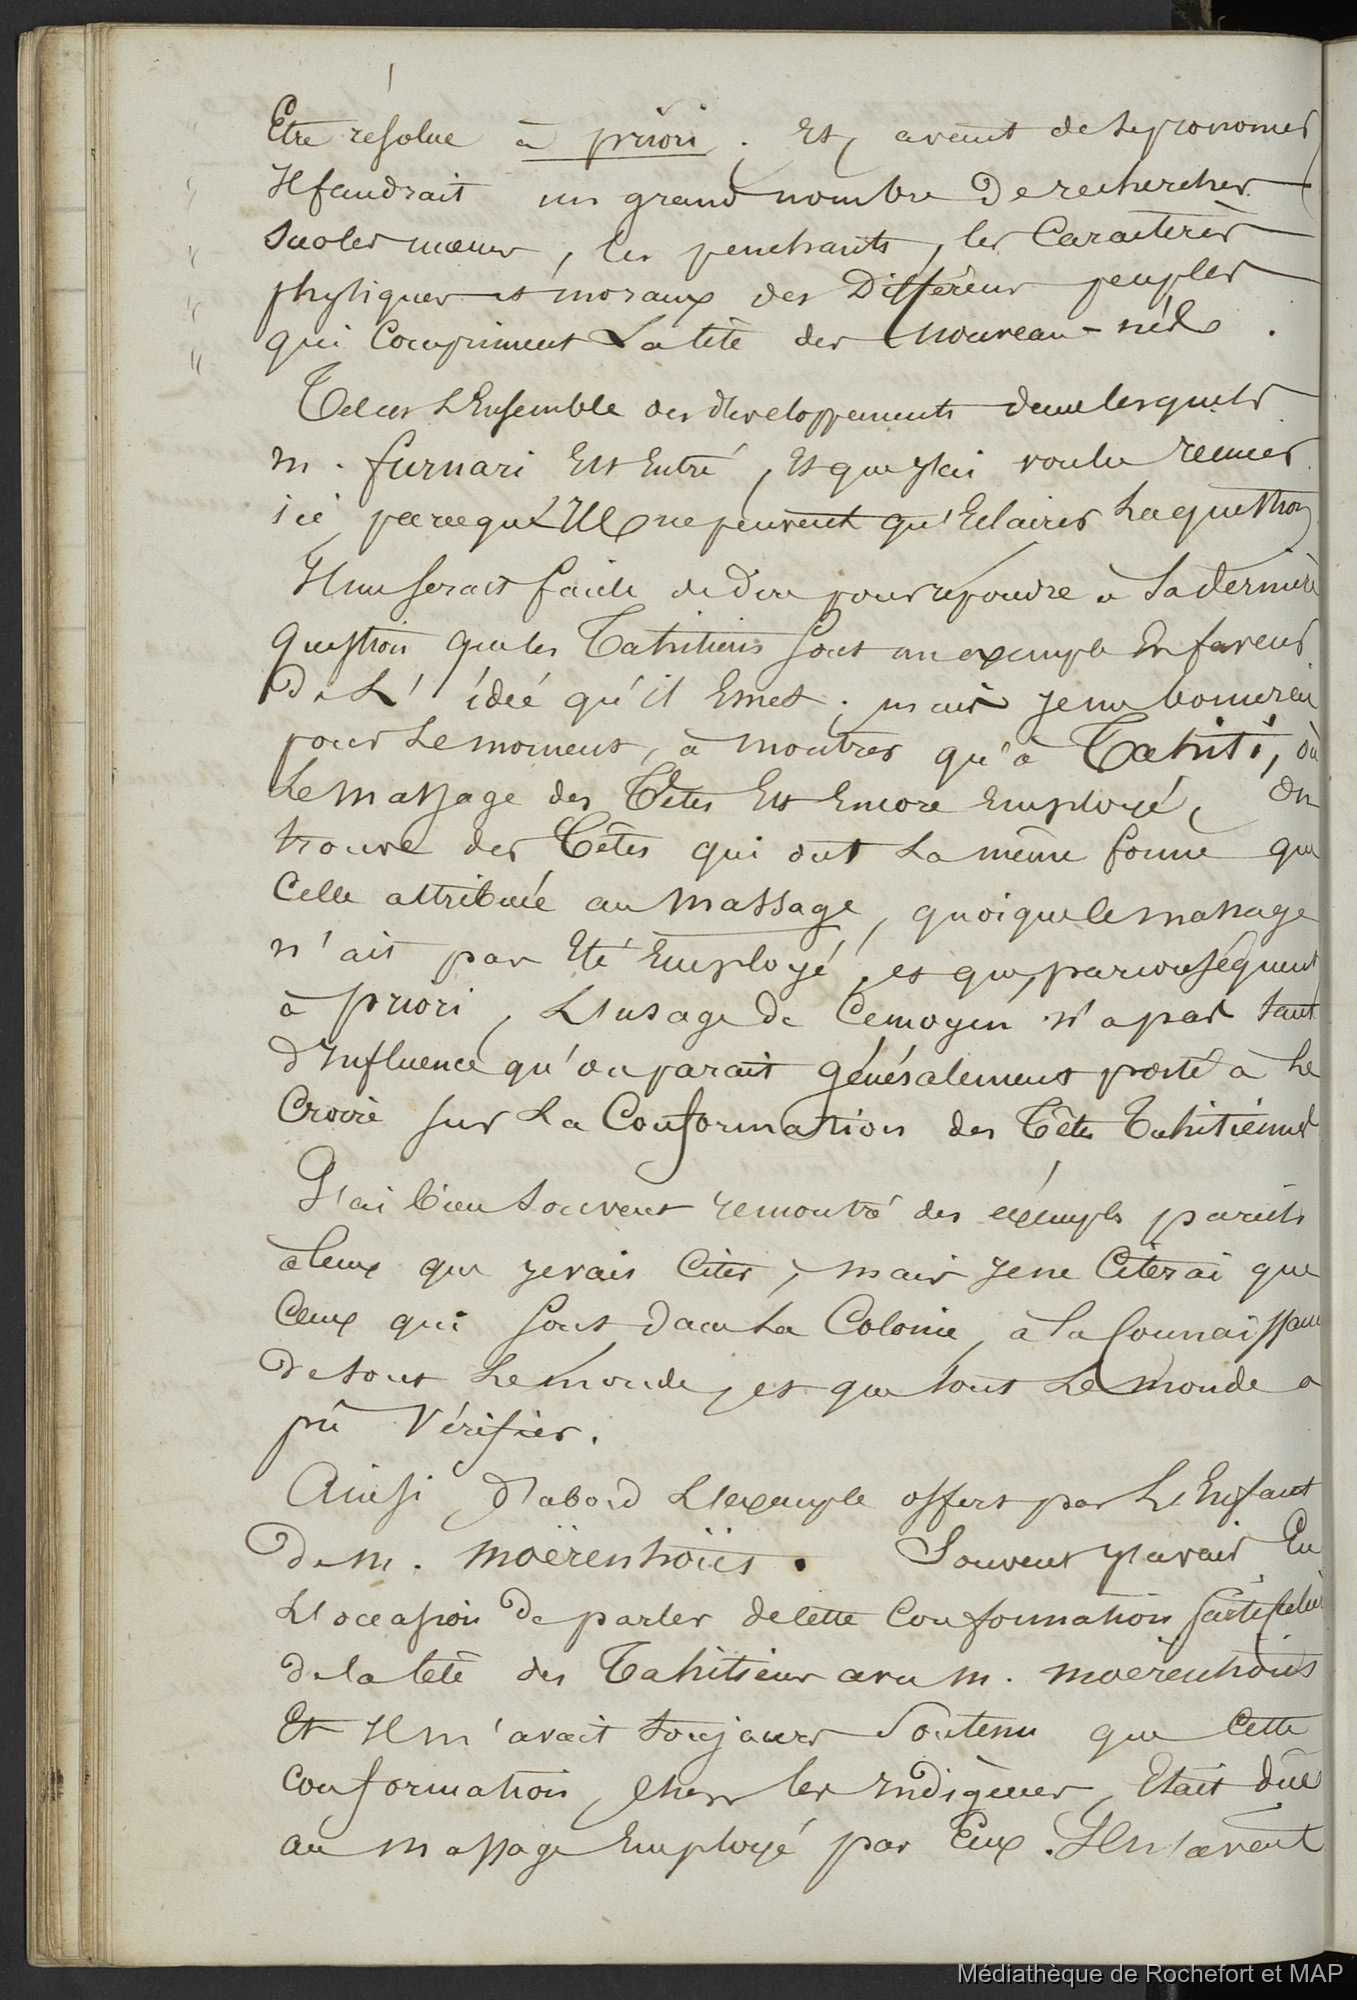 Etre résolue à priori. Et, avant de se prononcer
Il faudrait un grand nombre de recherches
sur les mœurs, les penchants, les Caractères
physiques et moraux des Différens peuples
qui Compriment La tête des nouveau-nés.
Tel est L'Ensemble des développements dans lesquels
m. furnari Est Entré, Et que J'ai voulu réunir
ici parcequ'Ils ne peuvent qu'Eclairer La question
Il me serait facile de dire pour répondre à La dernière
question que les Tahitiens sont un exemple En faveur
De L'idée qu'il Emet; mais je me bornerai
pour Le moment, à montrer qu'à Tahiti, où
Le massage des Têtes Est Encore Employé, On
trouve des Têtes qui ont La même forme que
Celle attribuée au massage, quoique le massage
n'ait pas Eté Employé, et que, par conséquent
à priori, L'usage de Ce moyen n'a pas tant
d'Influence qu'on parait généralement porté à Le
Croire sur La Conformation des Têtes Tahitiennes
J'ai bien souvent rencontré des exemples pareils
à Ceux que je vais Citer, mais je ne Citerai que
Ceux qui sont dans La Colonie, à la Connaissance
de tout Le monde, et que tout Le monde a
pû Vérifier.
Ainsi, d'abord L'exemple offert par L'Enfant
de m. moërenhoüts. Souvent j'avais Eu
L'occasion De parler de Cette Conformation
de la tête des Tahitiens avec m. moërenhoüts
Et Il m'avait toujours Soutenu que Cette
conformation, chez les Indigènes, Etait dûe
au massage Employé par Eux. Il m'avait
Médiathèque de Rochefort et MAP